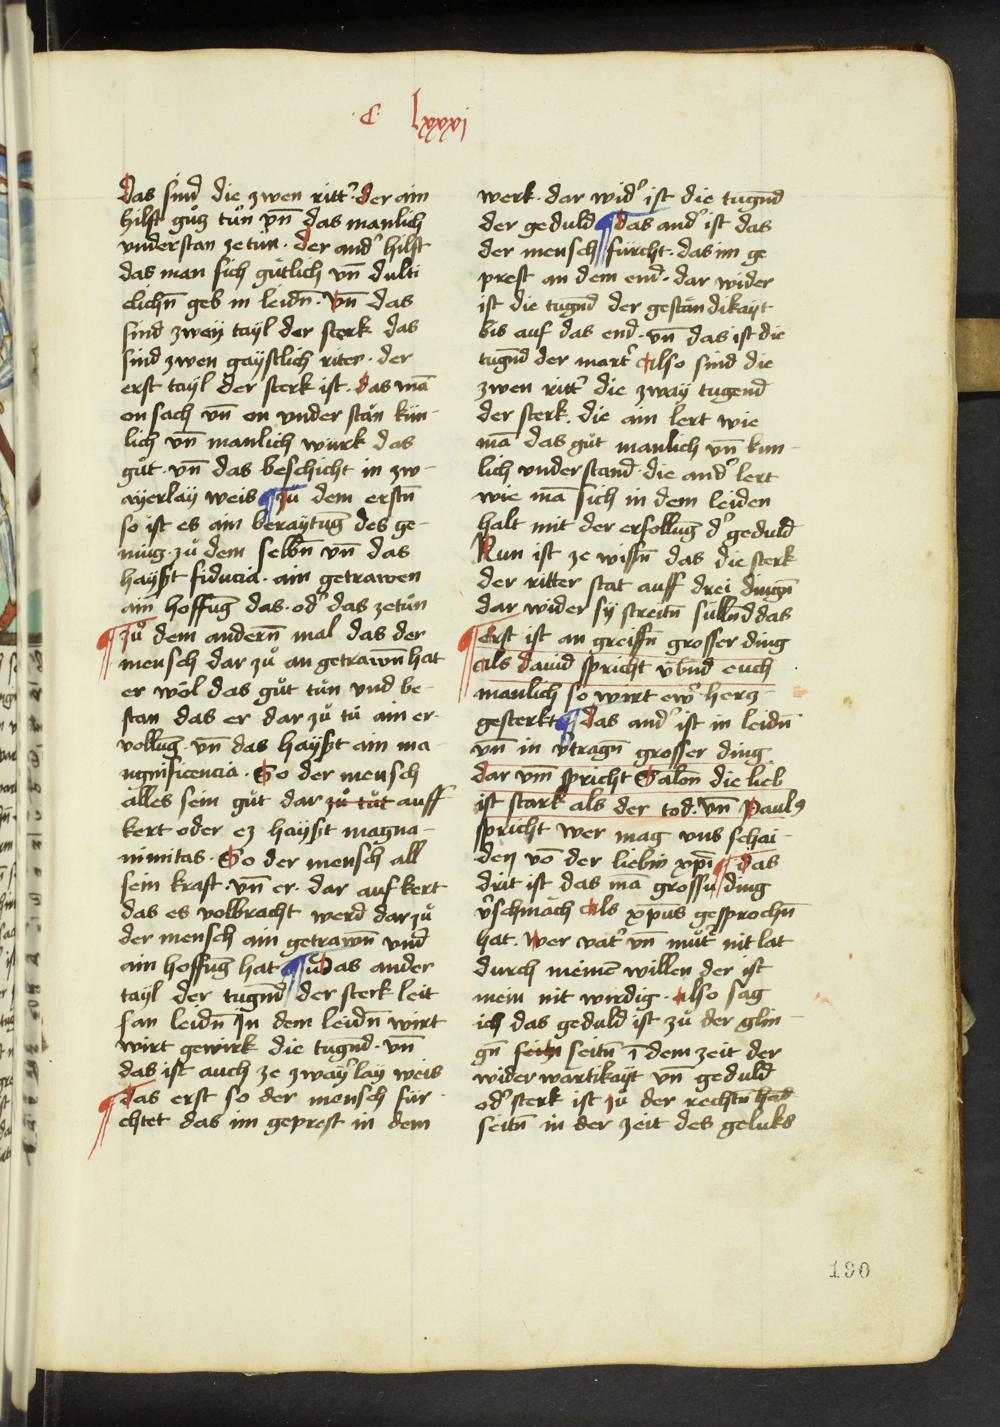 C lxxxvi
das sind die zwen rittˀ. der ain
hilft gůz tůn vn̄ das manlich
vnderstan ze tůn. der andˀ hilft
das man sich gůtlich vn̄ dulti
clichn̄ geb in leidn̄. Vn̄ das
sind zway tayl der sterk das
sind zwen gaystlich riter. der
erst tayl der sterk ist. das mā
on sach vn̄ on vnder stān kün-
lich vn̄ manlich würk das
gůt. vn̄ das beschicht in zw-
ayerlay weis ¶ zů dem erstn̄
so ist es ain beraytunḡ des ge-
müg. zů dem selbn̄ vn̄ das
hayßt fiducia. ain getrawen
ain hoffuḡ das. odˀ das ze tůn
¶ zů dem andern̄ mal das der
mensch dar zů an getrawn̄ hat
er wöl das gůt tůn vnd be-
stan das er dar zů tů ain er-
volluḡ. vn̄ das hayßt ain ma-
ngnificencia. So der mensch
alles sein gůt dar zů tůt auff
kert oder ez hayßt magna-
nimitas. So der mensch all
sein kraft. vn̄ er. dar auf kert
das es volbracht werd dar zů
der mensch ain getrawn̄ vnd
ain hoffuḡ hat ¶ zů das ander
tayl der tugn̄d der sterk leit
san leidn̄ In dem leidn̄ wirt
wirt gewirk die tugn̄d. vn̄
das ist auch ze zwayˀlay weis
¶ das erst so der mensch für
chtet das im geprest in dem
werk. dar widˀ ist die tugn̄d
der geduld ¶ das andˀ ist das
der mensch fürcht. das im ge
prest an dem end. dar wider
ist die tugn̄d der gestāndikayt
bis auf das end. vn̄ das ist die
tugn̄d der martˀ Also sind die
zwen rittˀ die zway tugend
der sterk. die ain lert wie
mā das gůt manlich vn̄ kün-
lich vnderstand. die andˀ lert
wie mā sich in dem leiden
halt mit der erfolluḡ dˀ geduld
Nun ist ze wissn̄ das die sterk
der ritter stat auff drei dingn̄
dar wider sy streitn̄ sülln̄d das
¶ Erst ist an greiffn̄ grosser ding
als dauid spricht vbn̄d euch
manlich so wirt ewˀ herz
gesterkt ¶ das andˀ ist in leidn̄
vn̄ in vˀtragn̄ grosser ding
dar vm̄ spricht Salon̄ die lieb
ist stark als der tod. vn̄ Paulꝰ
spricht wer mag vns schai-
den vō der liebin xp̄i ¶ das
drit ist das mā grossu ding
vˀschmāch als xp̄us gesprochn̄
hat. Wer vatˀ vn̄ můtˀ nit lat
durch meinē willen der ist
mein nit wirdig. Also sag
ich das geduld ist zů der glin-
gn̄ seitn̄ seitn̄ ī dem zeit der
widerwärtikayt vn̄ geduld
odˀ sterk ist zů der rechtn̄ hād
seitn̄ in der zeit des geluks
190